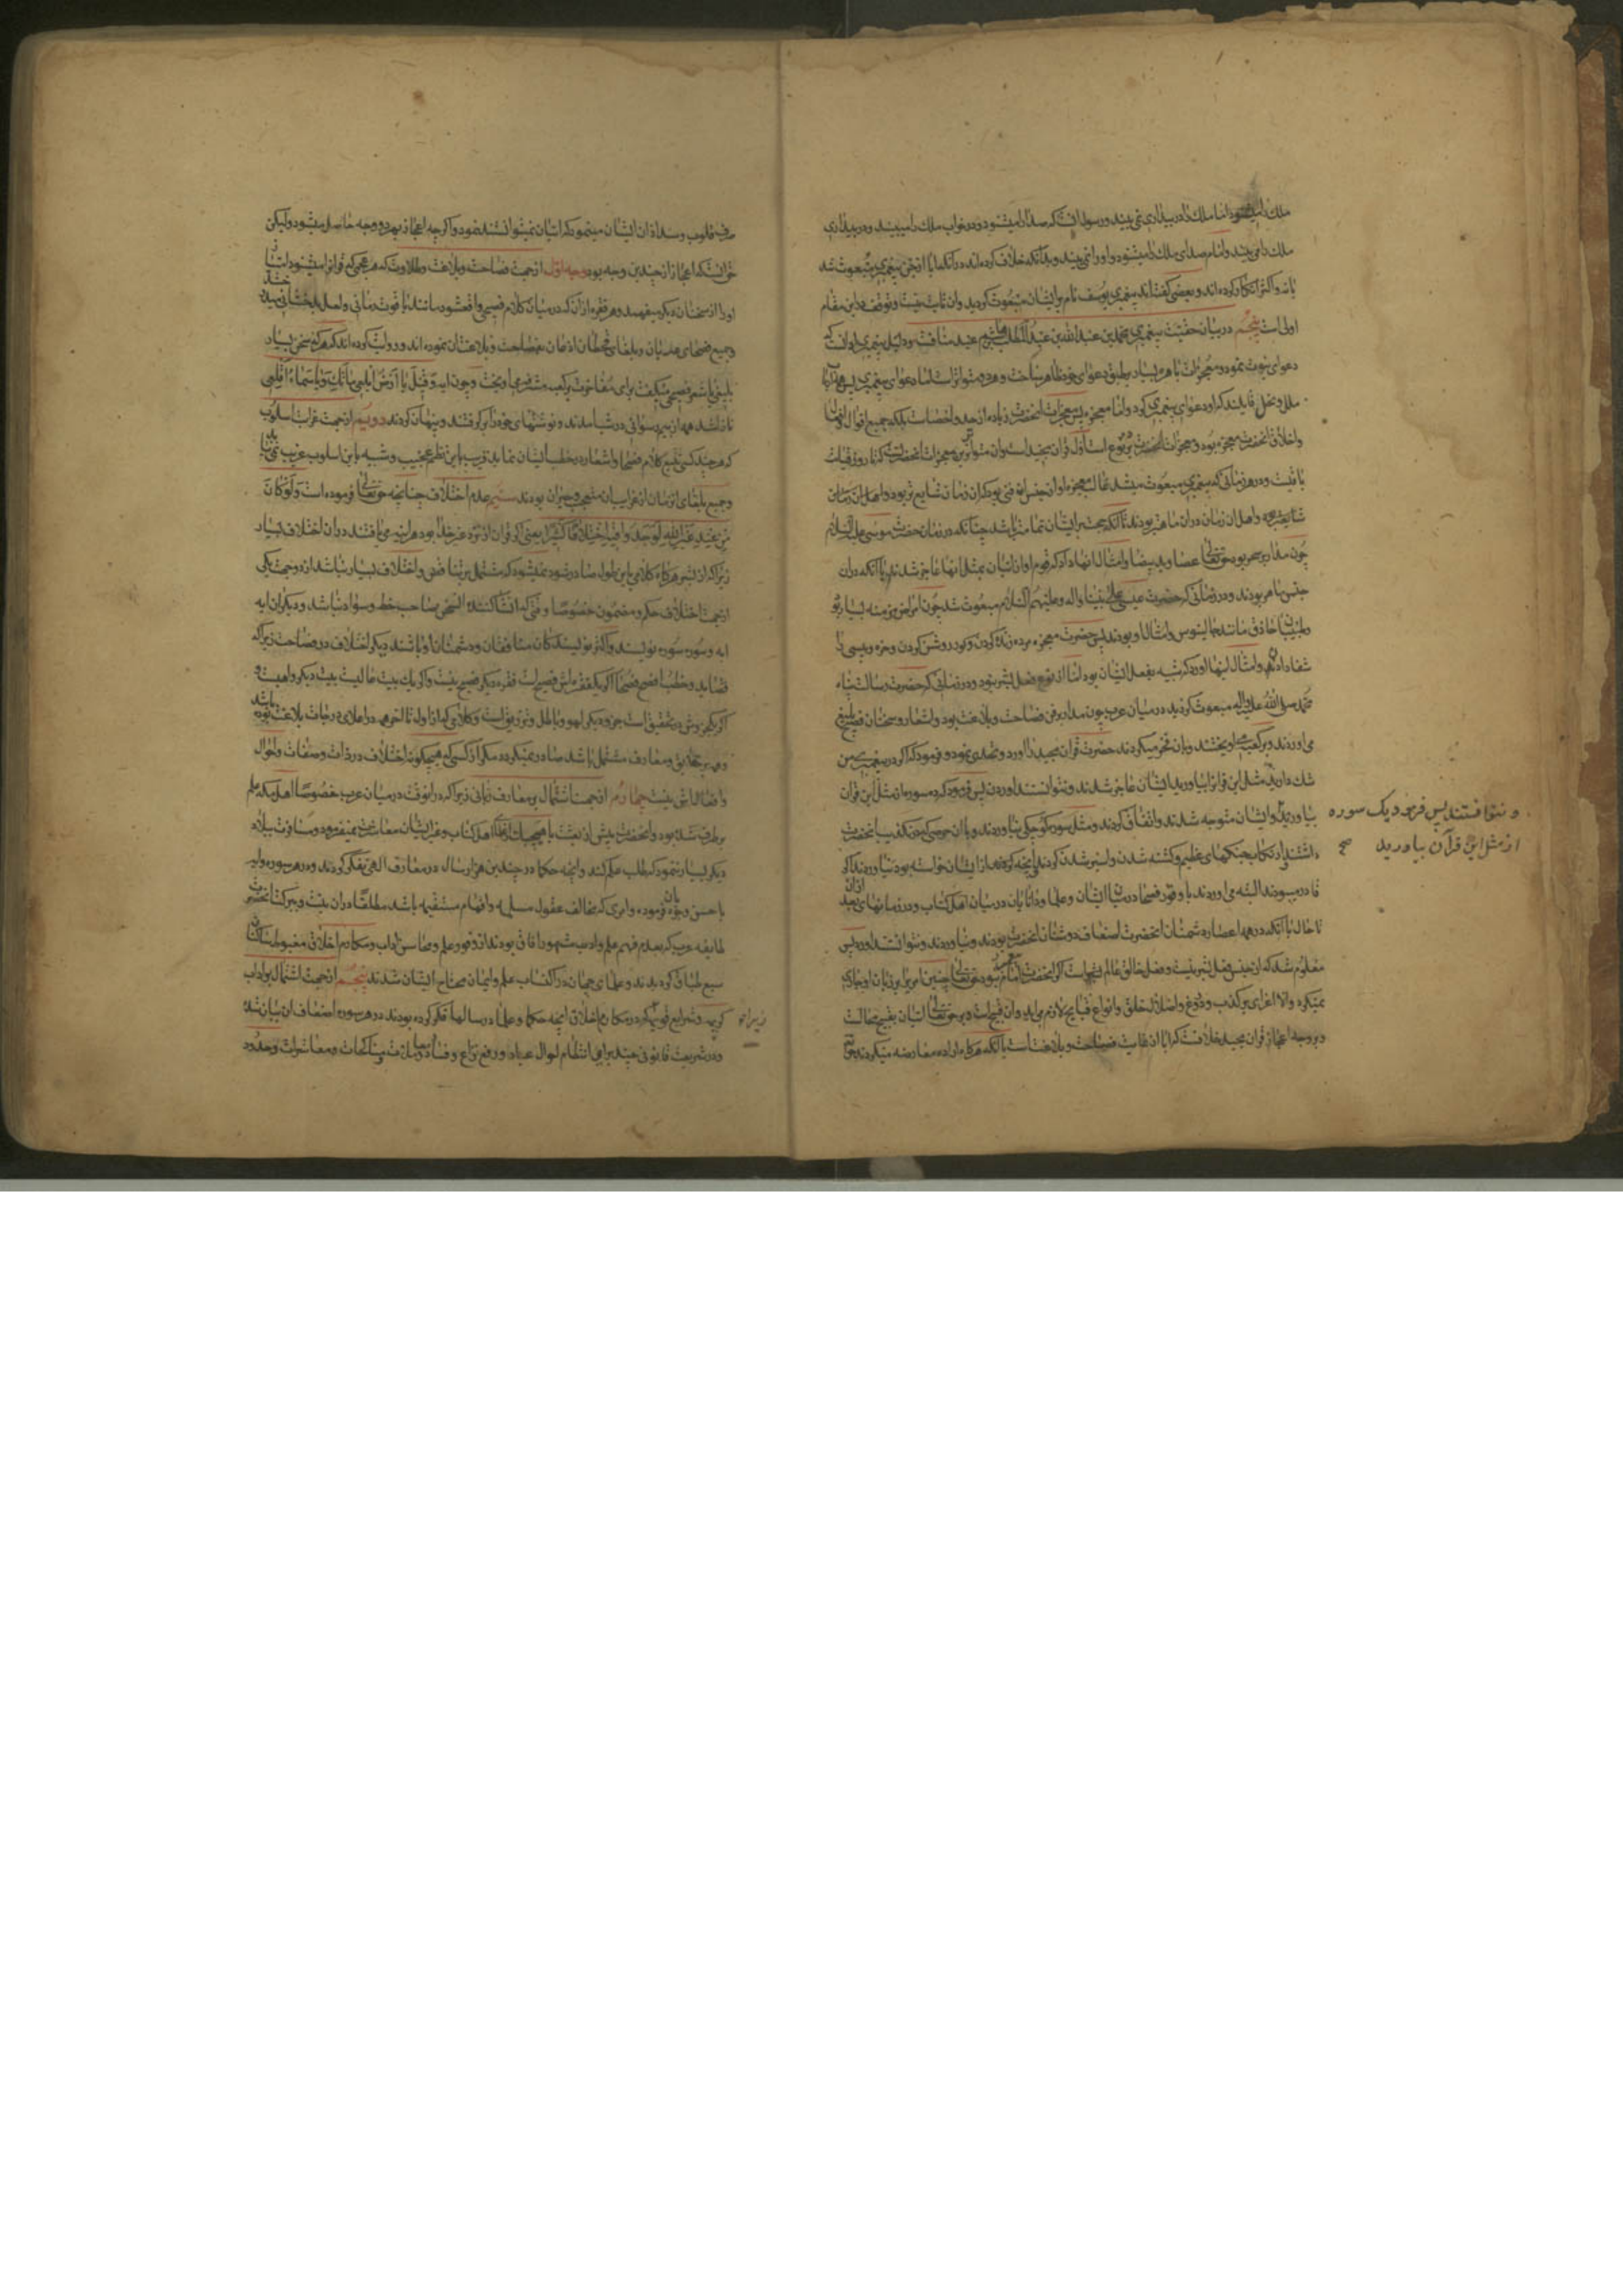 ملک را میشنود اما ملک را در بیداری نمی بیند و رسول انست که صدا را میشنود و در خواب ملک را میبیند و در بیداری
ملک را می بیند و امام صدای ملک را میشنود و او را نمی بیند و بدانکه خلاف کرده اند در انکه ایا از جن پیغمبری مبعوث شد
یا نه و اکثر انکار کرده اند و بعضی گفته اند پیغمبری یوسف نام بر ایشان مبعوث کردید و ان ثابت نیست و توقف در این مقام
اولی است پنجم در بیان حقیت پیغمبری محمد بن عبد الله بن عبد المطلب بن هاشم بن عبد مناف است و دلیل پیغمبری او انست که
دعوای نبوت نمود و معجزات باهره بسیار بر طبق دعوای خود ظاهر ساخت و هر دو متواتر است اما دعوای پیغمبری پس همه
ملل و نحل قایلند که او دعوای پیغمبری کرد و اما معجزه پس معجزات انحضرت زیاده از حد و احصاست بلکه جمیع اقوال و
و اخلاق انحضرت معجزه بود و معجزات انحضرت بر دو نوع است اول قران مجید است و ان متواترترین معجزات انحضرت است که تا روز قیامت
باقیست و در هر زمانی که پیغمبری مبعوث میشد غالب معجزه او از جنس ان فنی بود که در ان زمان شایع تر بود و اهل ان زمان
و اهل ان زمان در ان ماهر بودند تا انکه حجت بر ایشان تمام تر باشد چنانکه در زمان حضرت موسی علیه السلام
چون مدار بر سحر بود حق تعالی عصا و ید بیضا و امثال انها داد که قوم او از اتیان بمثل انها عاجز شدند با انکه در ان
جنس ماهر بودند و در زمانی که حضرت عیسی علی نبینا و اله و علیهم السلام مبعوث شد چون امراض مزمنه بسیار بود
و طبیبان حاذق مانند جالینوس و امثال او بودند پس حضرت معجزه مرده زنده کردن و کور روشن کردن و خوره و پیسی را
شفا دادن و امثال اینها اورد که شبیه بفعل ایشان بود اما از نوع فعل بشر نبود و در زمانی که حضرت رسالت پناه
محمد صلی الله علیه و اله مبعوث کردید در میان عرب چون مدار بر فن فصاحت و بلاغت بود و اشعار و سخنان فصیح بلیغ
می اوردند و بر کعبه می اویختند و بان فخر میکردند حضرت قران مجید را اورد و تحدی نمود و فرمود که اگر در پیغمبری من
شک دارید مثل این قران بیاورید ایشان عاجز شدند و نتوانستند اوردن پس فرمود که ده سوره از مثل این قران
بیاورید و ایشان متوجه شدند و اتفاق کردند و مثل سوره کوچکی نیاوردند و با ان حرصی که بر تکذیب انحضرت
داشتند و ارتکاب جنگهای عظیم و کشته شدن و اسیر شدن کردند و انچه کرد از ایشان خواسته بود نیاوردند اگر
قادر میبودند البته می اوردند با وفور فصحا در میان ایشان و علما و دانایان در میان اهل کتاب و در زمانهای بعد از ان
تا حال با انکه در همه اعصار دشمنان انحضرت اضعاف دوستان انحضرت بودند و نیاوردند و نتوانستند اورد پس
معلوم شد که از جنس فعل بشر نیست و فعل خالق عالم است
نمیکرد والا اغرای بر کذب و دروغ و اضلال خلق و انواع قبایح لازم می اید و ان قبیح است و بر حق تعالی اتیان بقبیح محالست
و بر وجه اعجاز قران مجید خلافست که ایا از غایت فصاحت و بلاغت است یا انکه هر گاه اراده معارضه میکردند حق
و نتوانستند پس فرمود یک سوره
از مثل این قرآن بیاورید صح
صرف قلوب و سد اذهان ایشان مینمود که اتیان نمیتوانستند نمود و اگر چه اعجاز بهر دو وجه حاصل میشود و لیکن
حق انست که اعجاز از چندین وجه بود وجه اول از جهت فصاحت و بلاغت و طلاوت که هر عجمی که قران را میشنود
او را از سخنان دیگر میفهمد و هر فقره از ان که در میان کلام فصیحی واقع شود مانند یاقوت رمانی و لعل بدخشانی
و جمیع فصحای عدنان و بلغای قحطان اذعان بفصاحت و بلاغت ان نموده اند و روایت کرده اند که هر که سخن بسیار
بلیغی یا شعر فصیحی میگفت برای مفاخرت بر کعبه مشرفه می اویخت و چون ایه و قیل یا ارض ابلعی ماءک و یا سماء اقلعی
نازل شد همه از بیم رسوائی در شب امدند و نوشتهای خود را بر گرفتند و پنهان کردند دویم از جهت غرابت اسلوب
که هر چند کسی تتبع کلام فصحا و اشعار و خطب ایشان نماید قریب باین نظم عجیب و شبیه باین اسلوب غریب نمی یابد
و جمیع بلغای ان زمان از غرابت ان متعجب و حیران بودند سیم عدم اختلاف چنانچه حق تعالی فرموده است و لو کان
من عند غیر الله لوجدوا فیه اختلافا کثیرا یعنی اگر قران از نزد غیر خدا بود هر اینه می یافتند در ان اختلاف بسیار
زیرا که از بشر هر گاه کلامی باین طول صادر شود نمیشود که مشتمل بر تناقض و اختلاف بسیار نباشد از دو جهت یکی
از جهت اختلاف حکم و مضمون خصوصا وقتی که انشا کننده شخصی صاحب خط و سواد نباشد و دیگران ایه
ایه و سوره سوره نویسند و اکثر نویسندگان منافقان و دشمنان او باشند دیگر اختلاف در فصاحت زیرا که
قصاید و خطب افصح فصحا اگر یک فقره اش فصیح است فقره دیگر فصیح نیست و اگر یک بیت عالیست بیت دیگر واهیست و
اگر یک جزوش در تحقیق است جزو دیگر لهو و باطل و تزویق است و کلامی که از اول تا اخر همه در اعلای درجات بلاغت بوده باشد
و همه بر حقایق و معارف مشتمل باشد صادر نمیگردد مگر از کسی که هیچ گونه اختلاف در ذات و صفات و احوال
و افعالش نیست چهارم از جهت اشتمال بر معارف ربانی زیرا که در انوقت در میان عرب خصوصا اهل مکه علم
بر طرف شده بود و انحضرت پیش از بعثت با هیچیک از علمای اهل کتاب و غیر ایشان معاشرت نمیفرمود و مسافرت ببلاد
دیگر بسیار ننمود که طلب علم کند و انچه حکما در چندین هزار سال در معارف الهی تفکر کردند در هر سوره و ایه
باحسن وجوه بیان فرموده و امری که مخالف عقول سلیمه و افهام مستقیمه باشد مطلقا در ان نیست و ببرکت انحضرت
طایفه عرب که بعدم فهم علم و ادب مشهور افاق بودند از وفور علم و محاسن اداب و مکارم اخلاق مغبوط ساکنان
سبع طباق گردیدند و علمای جهان در اکتساب علم و ایمان محتاج ایشان شدند پنجم از جهت اشتمال بر اداب
کریمه و شرایع قویمه زیرا که در مکارم اخلاق انچه حکما و علما در سالها فکر کرده بودند در هر سوره اضعاف ان بیان شد
و در شریعت قانونی چند برای انتظام احوال عباد و رفع نزاع و فساد و معاملات و مناکحات و معاشرات و حدود